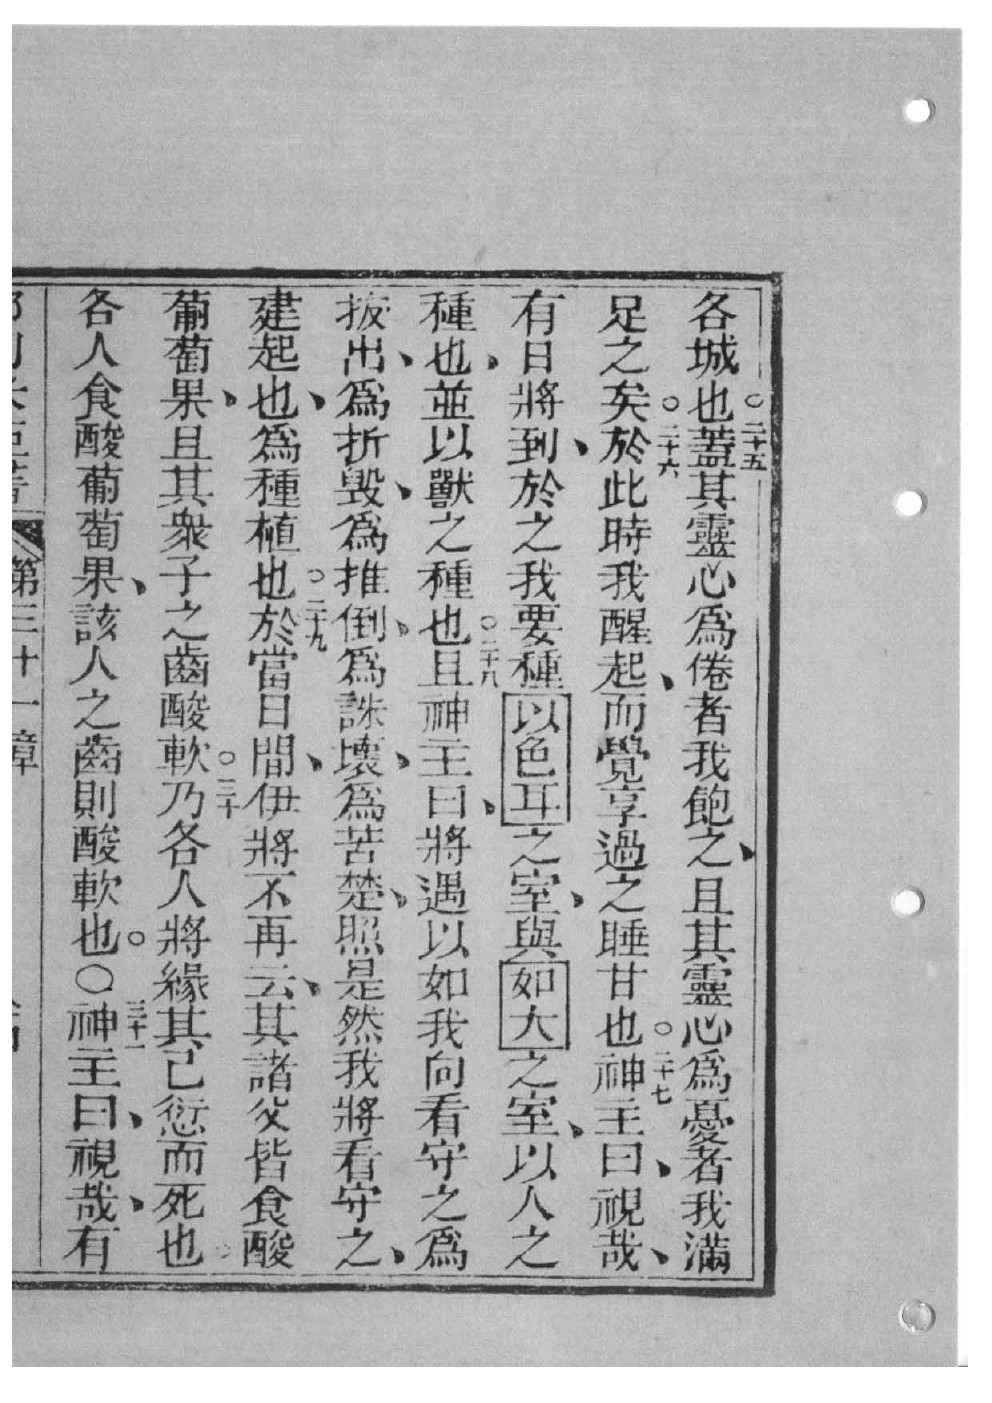 各城也○二十五蓋其靈心爲倦者我飽之、且其靈心爲憂者我滿
足之矣○二十六於此時我醒起、而覺享過之睡甘也○二十七神主曰、視哉、
有日將到、於之我要種以色耳之室、與如大之室、以人之
種也、並以獸之種也○二十八且神主曰、將遇以如我向看守之爲
拔出、爲折毀、爲推倒、爲誅壞、爲苦楚、照是然我將看守之、
建起也、爲種植也○二十九於當日間、伊將不再云、其諸父皆食酸
葡萄果、且其衆子之齒酸軟○三十乃各人將緣其己愆而死也。
各人食酸葡萄果、該人之齒則酸軟也。○三十一神主曰、視哉、有
第三十一章